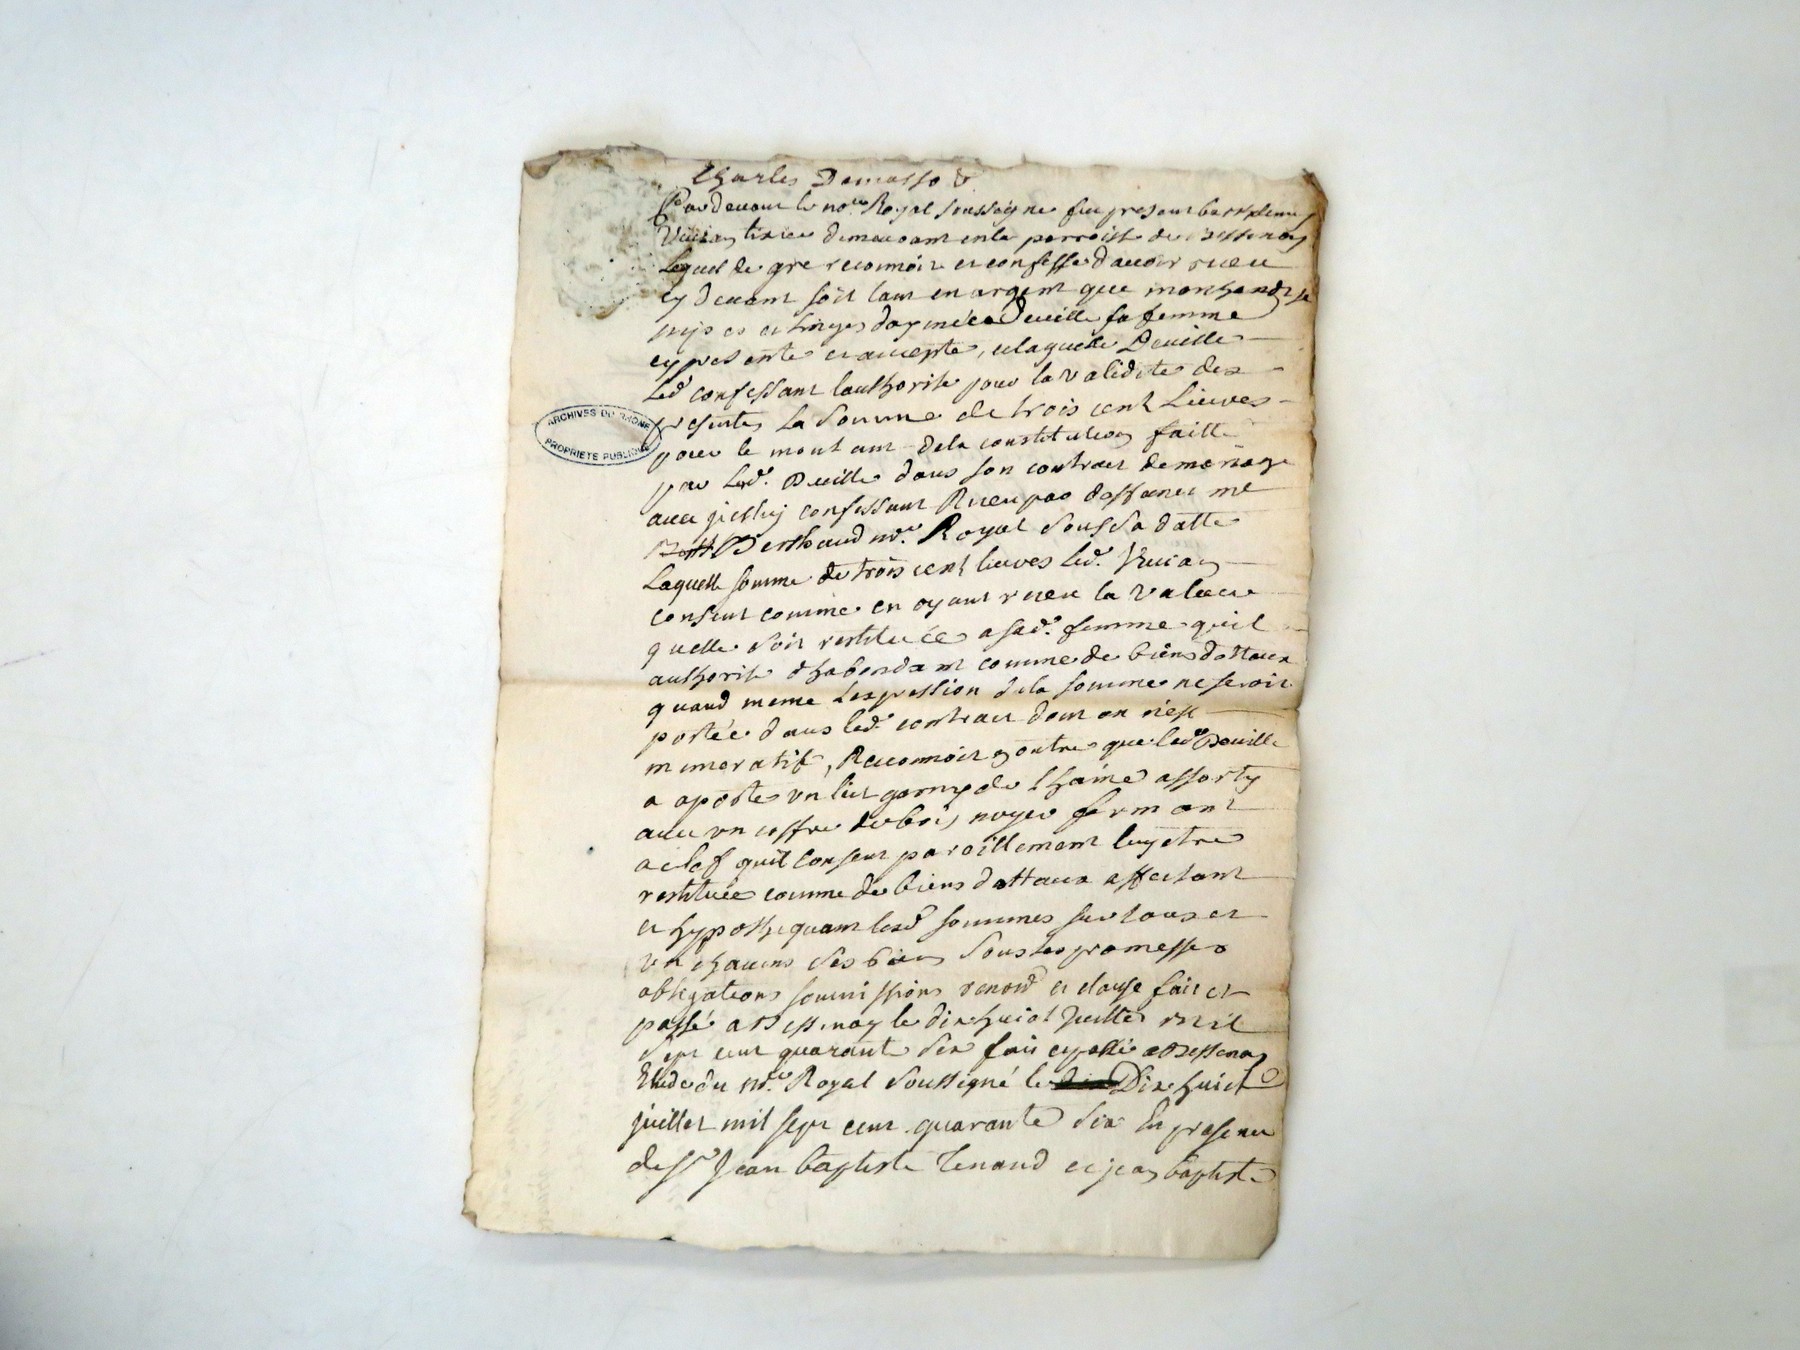 Charles Damasso &
Pardevant le no.re Royal soussigné fut present barthelemy
Vivian tixier demeurant en la parroisse de Bessenay
Lequel de gre reconnoit et confesse d'avoir receu
cy devant soit tant en argent que marchandise
et linges d'aymée Deville sa femme
cy presente et acceptte, et laquelle Deville
Led. confessant l'authorise pour la validité des
presentes La somme de trois cent Livres
pour le montant de la constitution faitte
par Lad. Deville dans son contract de mariage
avec ycelluy confessant Receu par deffunct me
Berthaud no.re Royal sous sa datte
Laquelle somme de trois cent livres led. Vivian
consent comme en ayant receu la valeur
quelle soit restituée a sad. femme quil
authorise d'habondant comme de biens dottaux
quand meme l'expression de la somme ne seroit
portée dans led. contract dont on n'est
memoratif, Reconnoit en outre que lad. Deville
a aporté un lict garny de laine assorty
avec un coffre de bois noyer fermant
a clef quil consent pareillement luy etre
restituée comme de biens dottaux affectant
et hypothequant lesd. sommes sur tous et
un chacuns ses biens sous les promesses
obligations soumissions renond. et clause fait et
passé a Bessenay le dix huict Juillet mil
sept cent quarante six fait et passé a Bessenay
Etude du no.re Royal soussigné le Dix huict
juillet mil sept cent quarante six En presence
de sr Jean baptiste Tenaud et jean baptiste
ARCHIVES DU RHONE
PROPRIETE PUBLIQUE